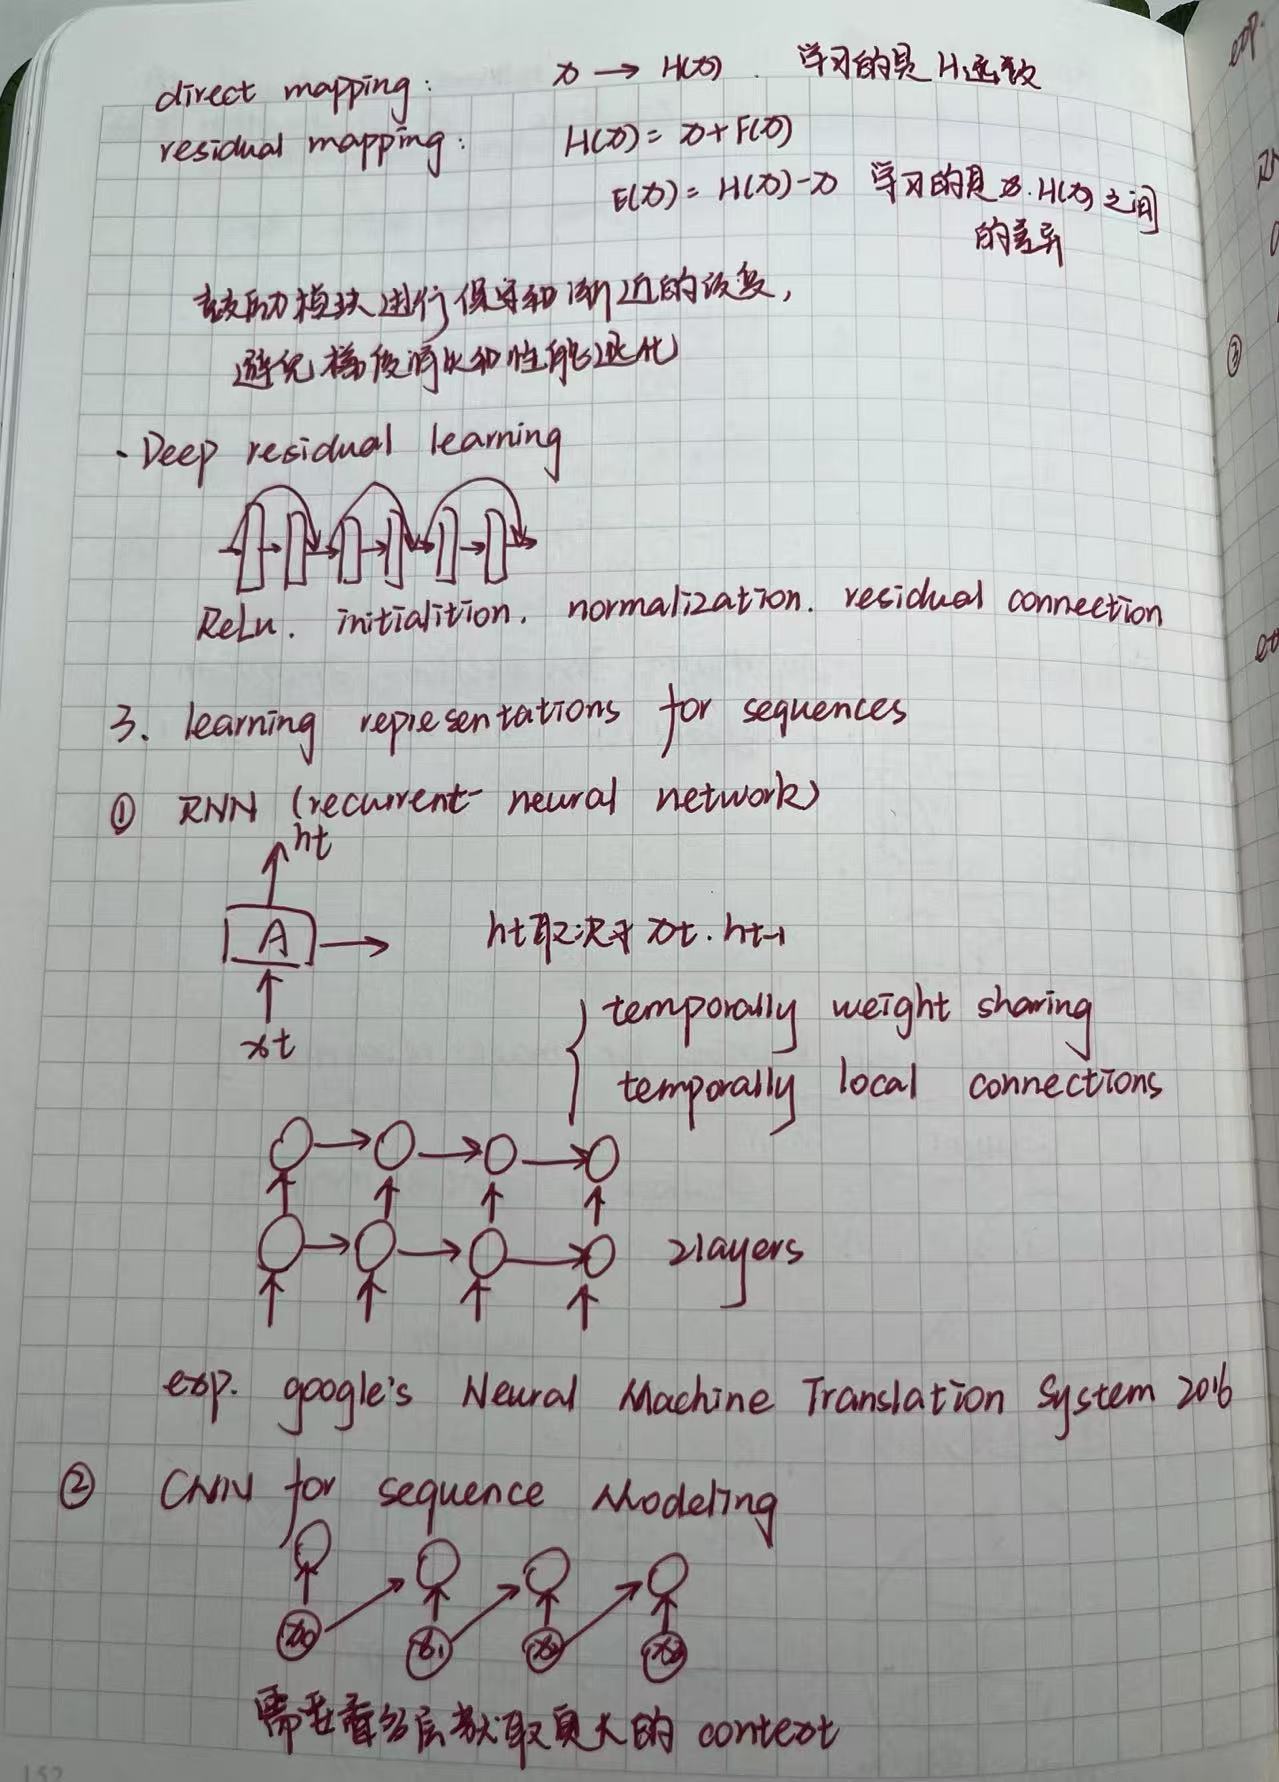 direct mapping: x → H(x). 学习的是H函数
residual mapping: H(x) = x + F(x)
F(x) = H(x) - x 学习的是x. H(x)之间
的差异
鼓励模块进行保守和渐近的改变,
避免梯度消失和性能退化
· Deep residual learning
ReLu. initialition. normalization. residual connection
3. learning representations for sequences
① RNN (recurrent neural network)
ht
A
ht取决于 xt. ht-1
xt
temporally weight sharing
temporally local connections
2layers
exp. google's Neural Machine Translation System 2016
② CNN for sequence Modeling
x0 x1 x2 x3
需要看多层获取更大的 context
152
exp.
③